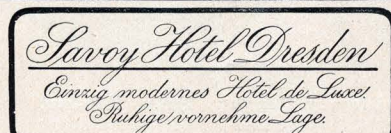 Savoy Hotel Dresden
Einzig modernes Hôtel de Luxe.
Ruhige vornehme Lage.